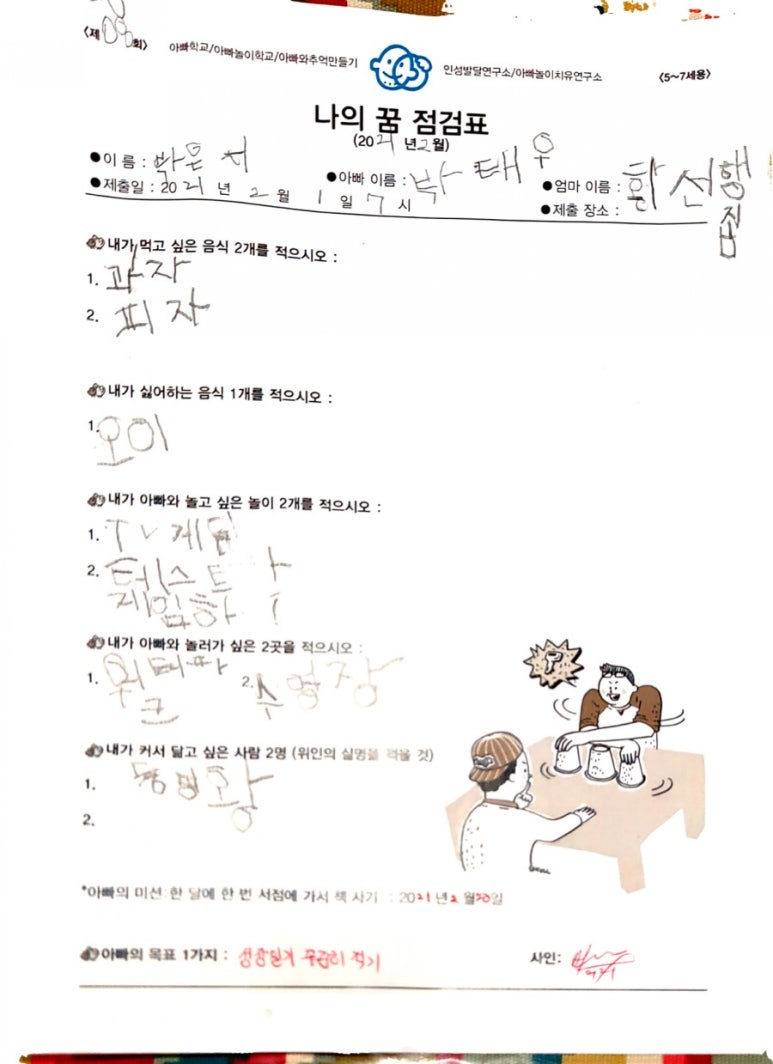 〈제 회〉 아빠학교/아빠놀이학교/아빠와추억만들기 인성발달연구소/아빠놀이치유연구소 〈5~7세용〉
나의 꿈 점검표
(2021년2월)
●이 름 : 박은서 ●아빠 이름 : 박태우 ●엄마 이름 : 황선행
●제출일 : 2021 년 2 월 1 일 7 시 ●제출 장소 : 집
내가 먹고 싶은 음식 2개를 적으시오 :
1. 과자
2. 피자
내가 싫어하는 음식 1개를 적으시오 :
1. 오이
내가 아빠와 놀고 싶은 놀이 2개를 적으시오 :
1. TV 게임
2.
내가 아빠와 놀러가 싶은 2곳을 적으시오 :
1. 워터파크 2. 수영장
내가 커서 닮고 싶은 사람 2명 (위인의 실명을 적을 것)
1. 동명왕
2.
*아빠의 미션:한 달에 한 번 서점에 가서 책 사기 : 2021년2월20일
아빠의 목표 1가지 : 성장일기 꾸준히 적기 사인: